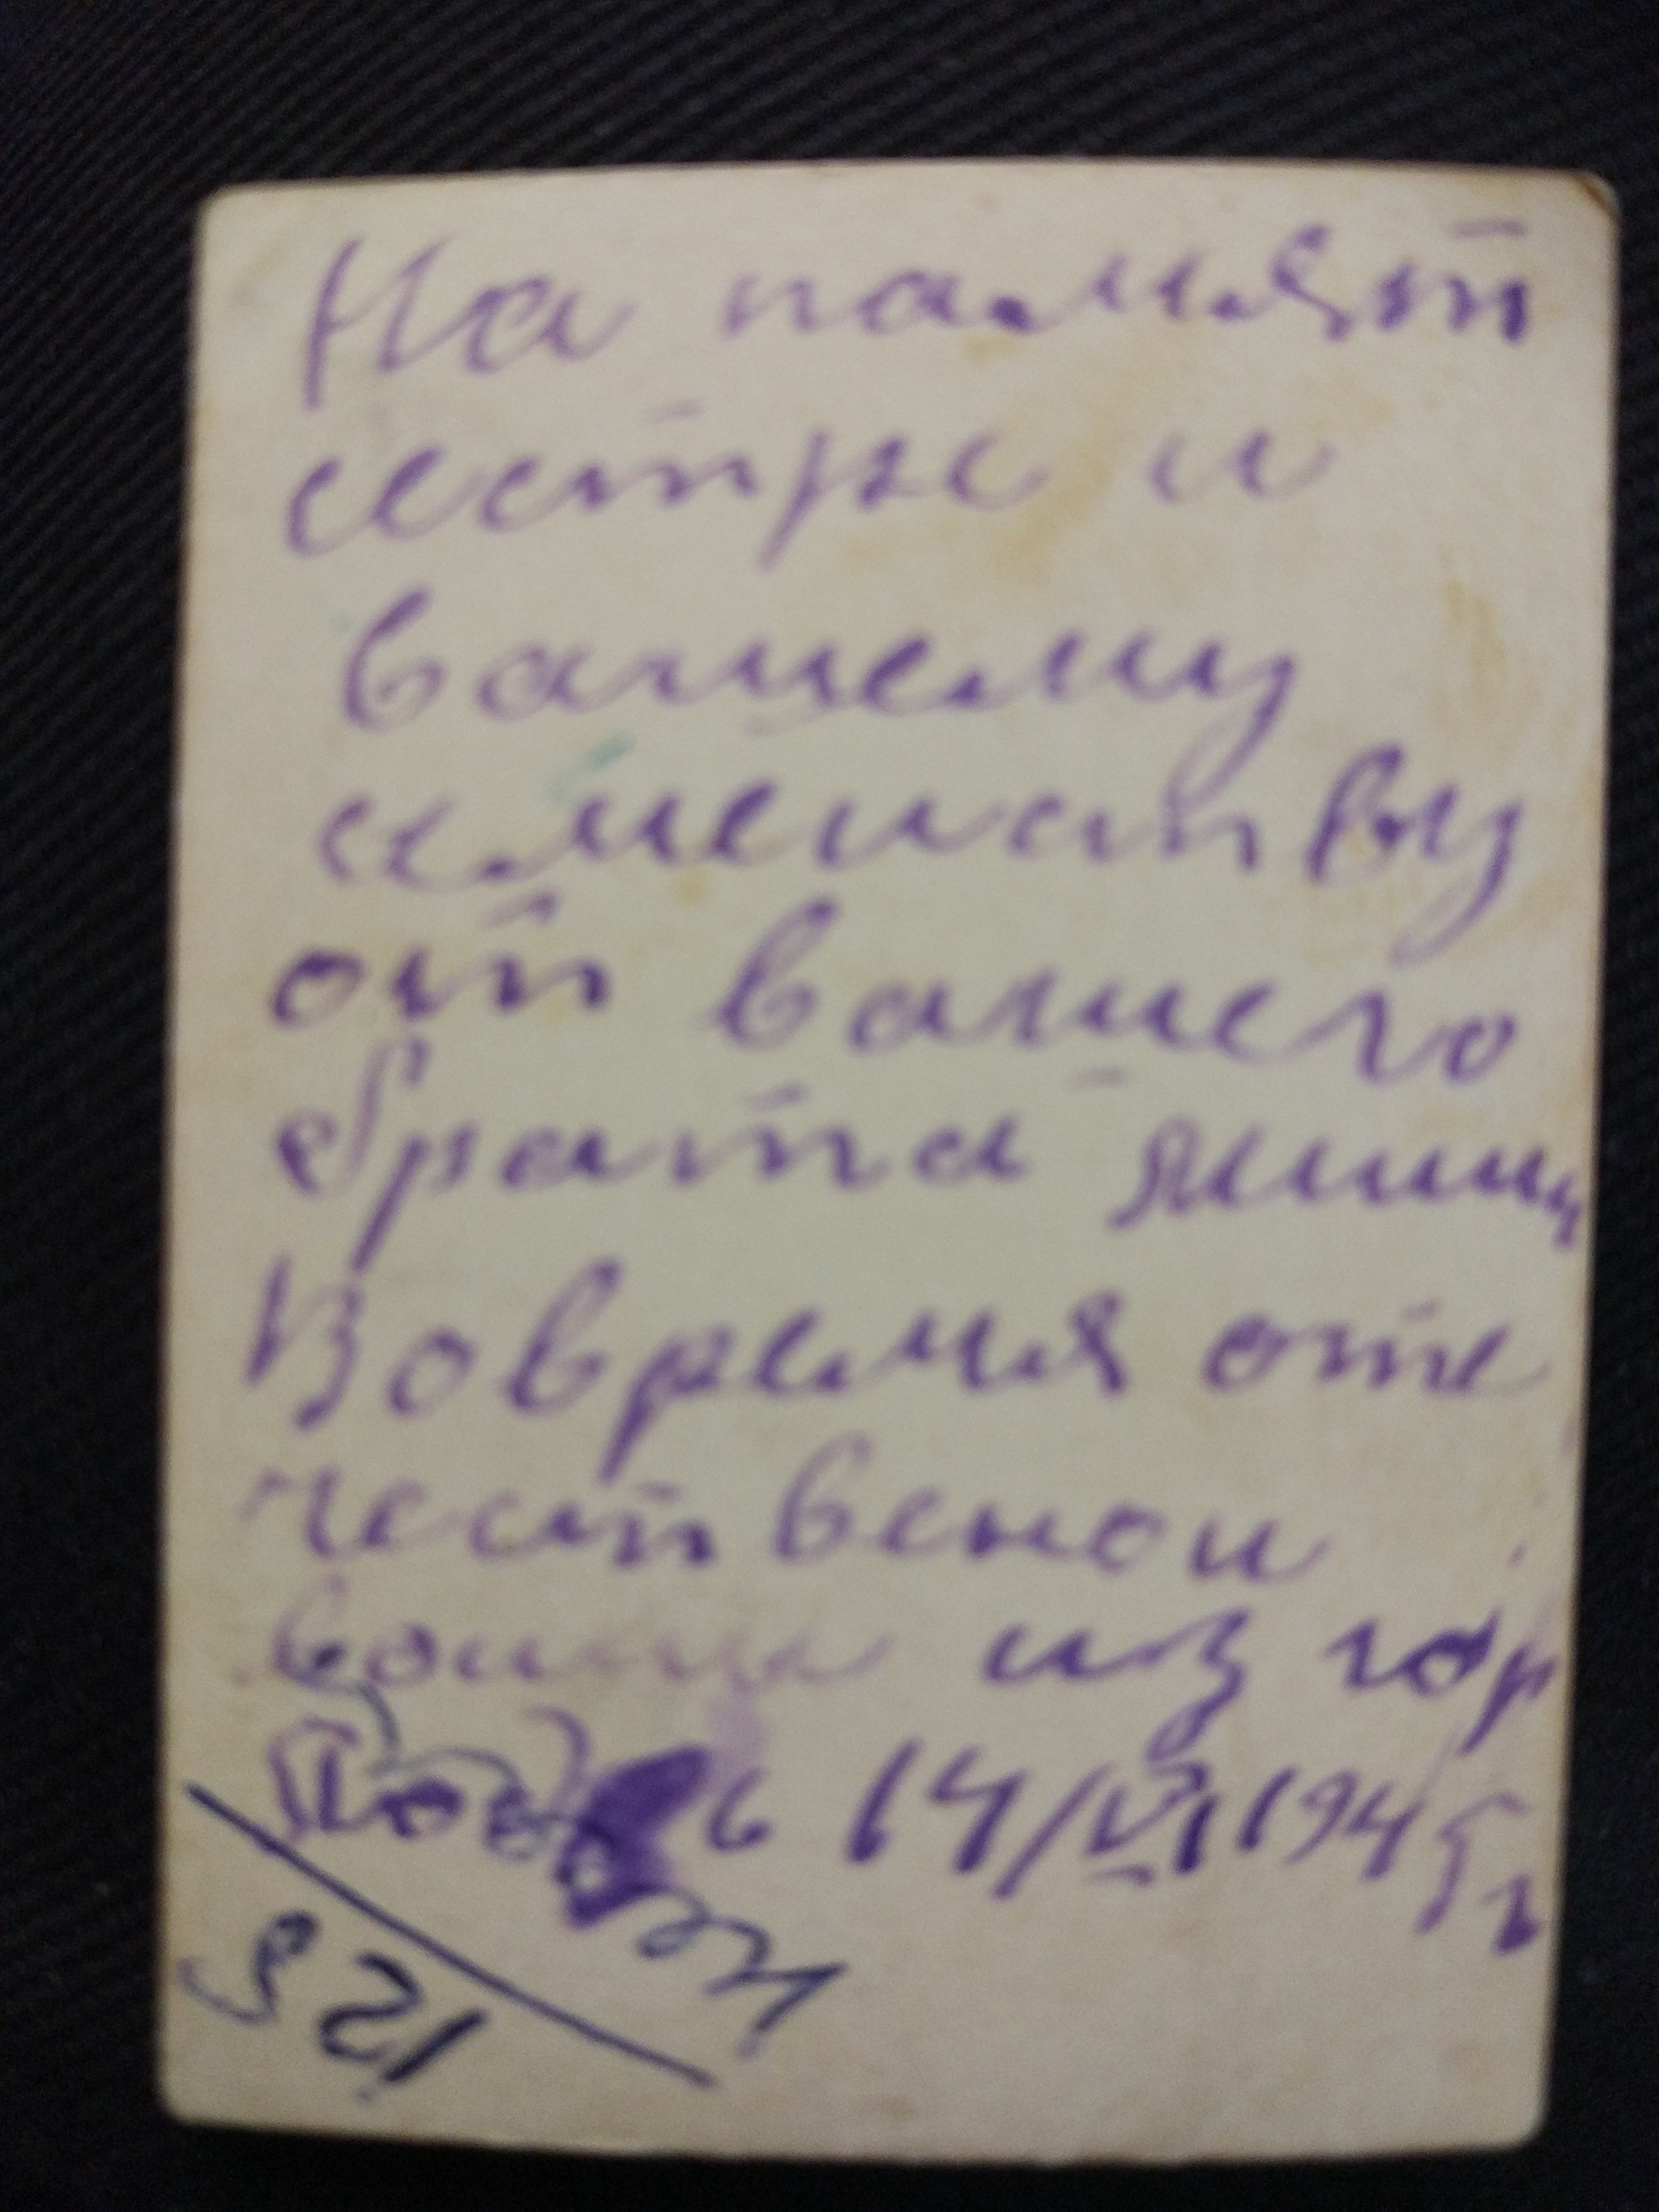 На памят
сестре и
вашему
семенству
от вашего
брата
Вовремя оте
чественои
воины из гор
14/VI 1945 г
125